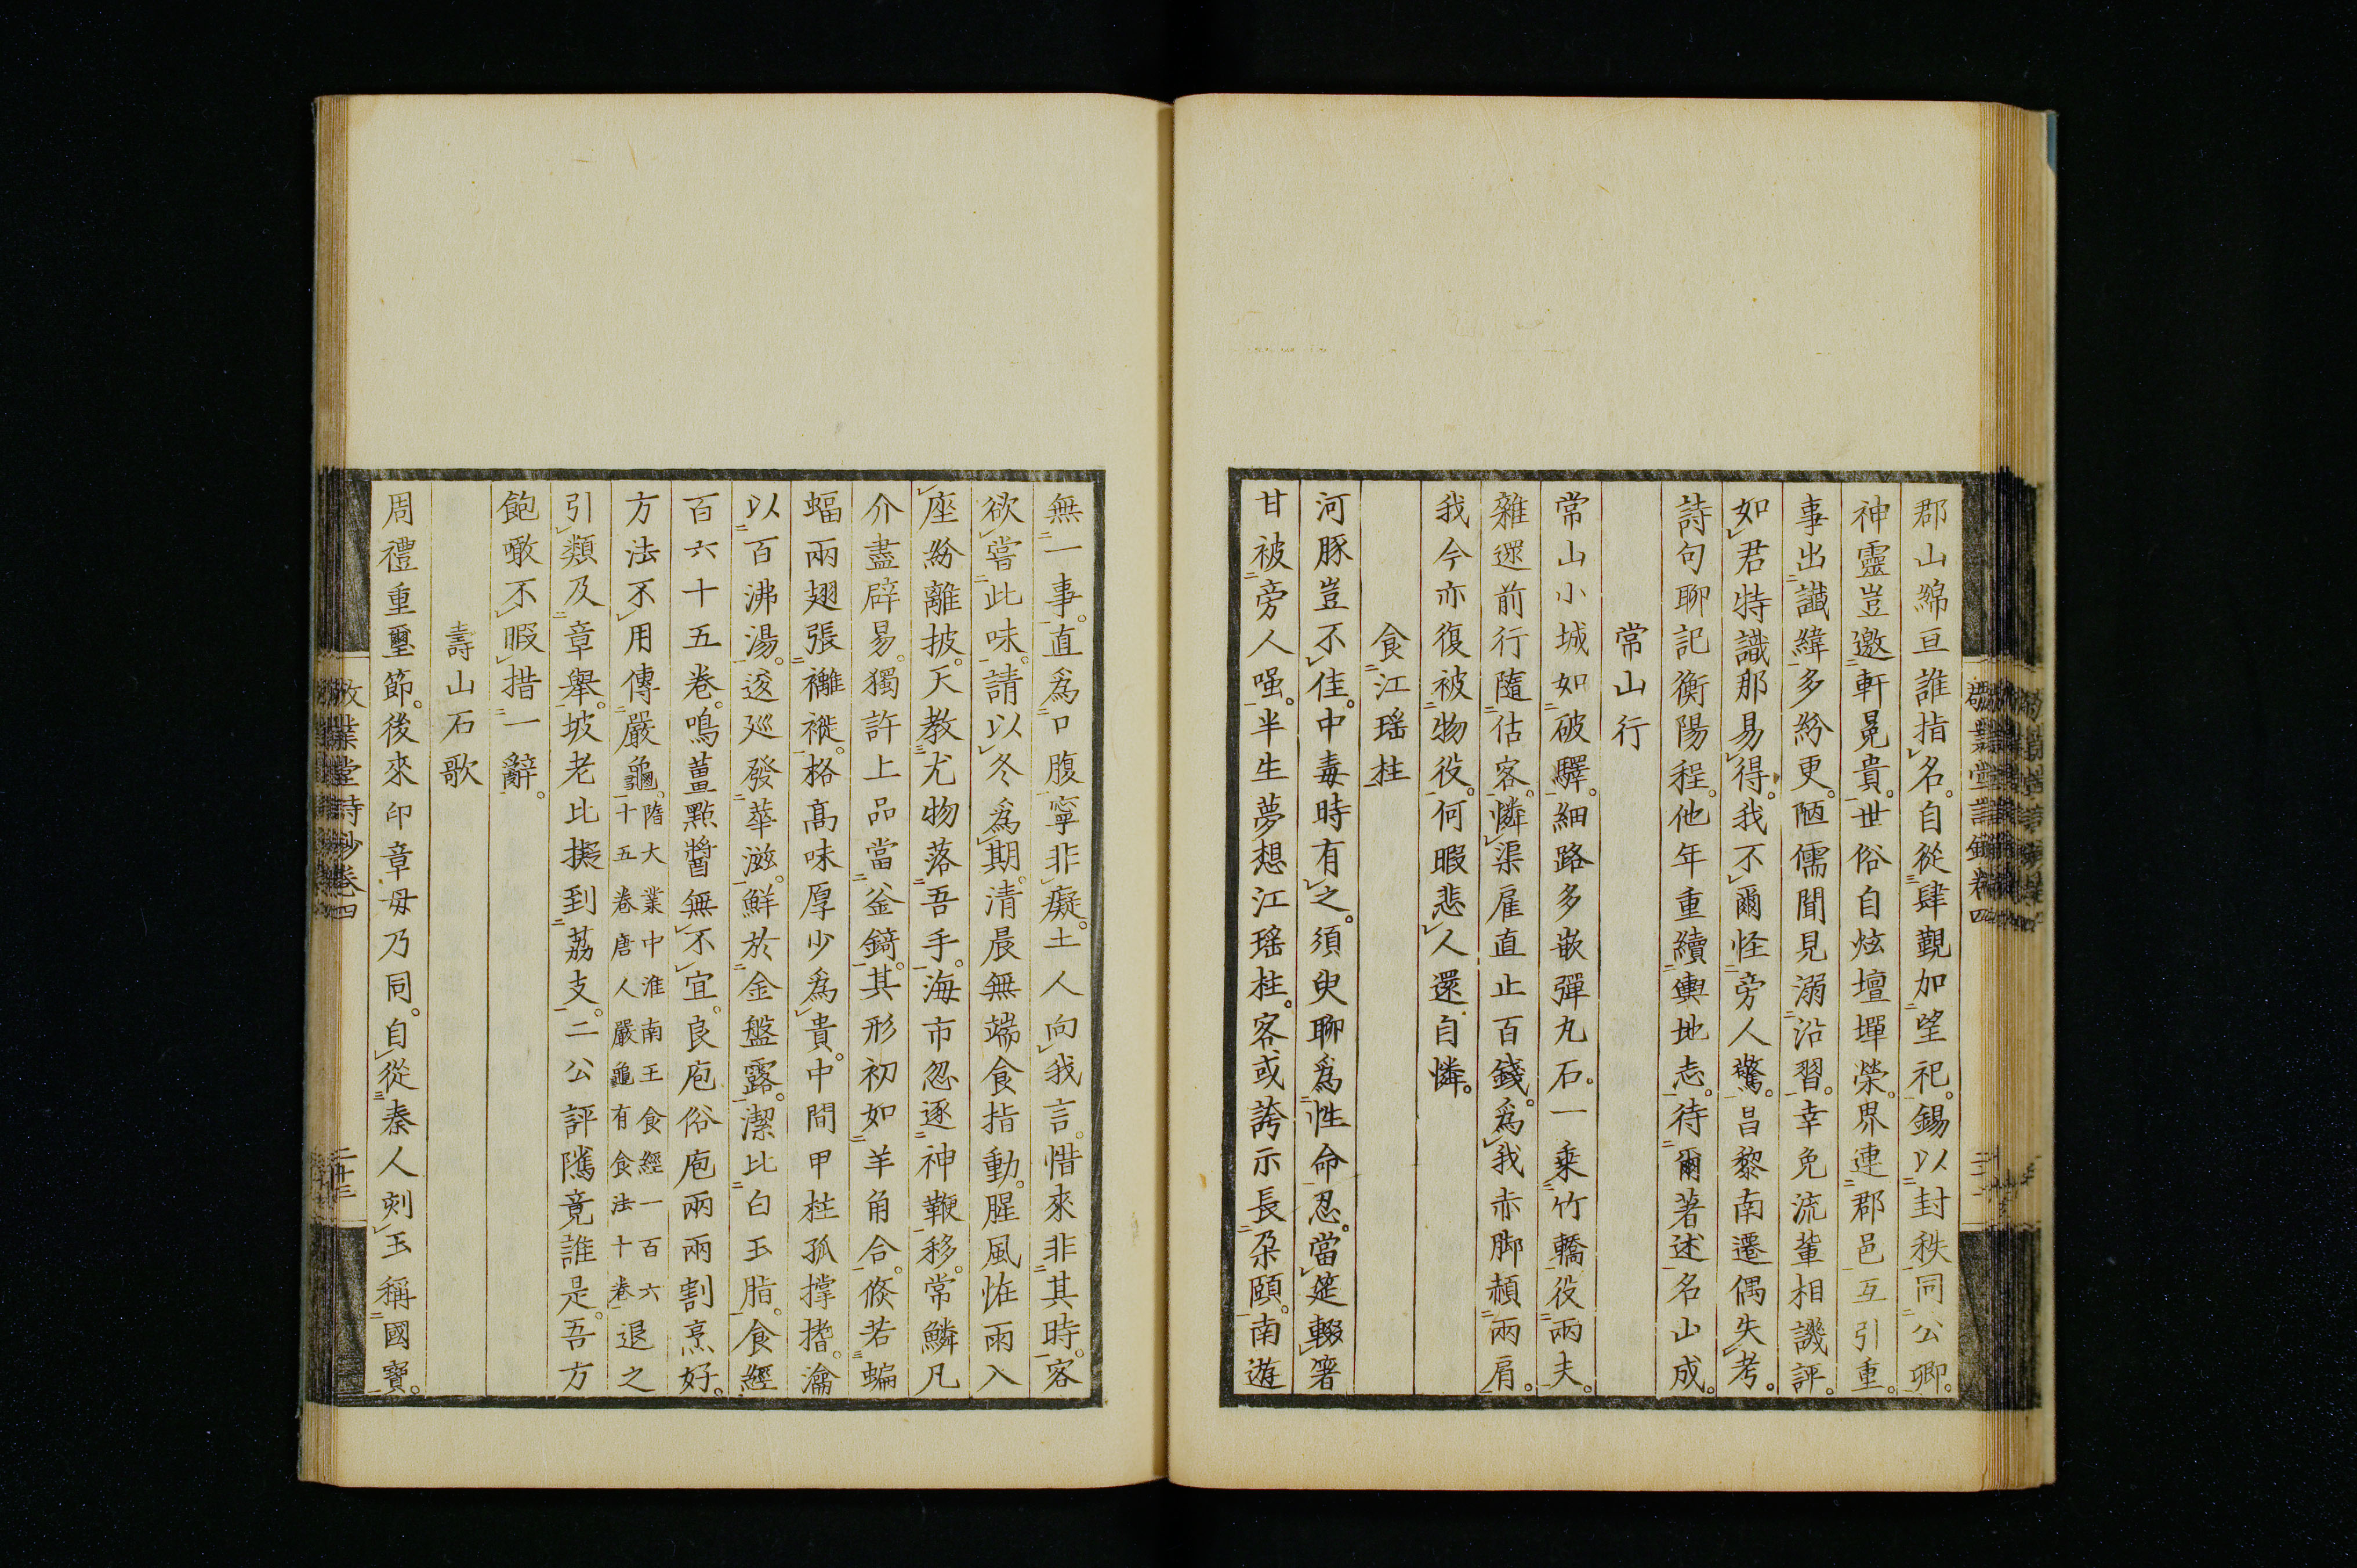 郡山綿亘誰指名。自從肆覲加望祀。錫以封秩同公卿。
神靈豈邀軒冕貴。世俗自炫壇墠榮。界連郡邑互引重。
事出讖緯多紛更。陋儒聞見溺沿習。幸免流輩相譏評。
如君特識那易得。我不爾怪旁人驚。昌黎南遷偶失考。
詩句聊記衡陽程。他年重續輿地志。待爾著述名山成。
常山行
常山小城如破驛。細路多嵌彈丸石。一乘竹轎役兩夫。
雜遝前行隨估客。憐渠雇直止百錢。爲我赤脚頳兩肩。
我今亦復被物役。何暇悲人還自憐。
食江瑶柱
河豚豈不佳。中毒時有之。須臾聊爲性命忍。當筵輟箸
甘被旁人嗤。半生夢想江瑶柱。客或誇示長朶頤。南遊
無一事。直爲口腹寧非癡。土人向我言。惜來非其時。客
欲嘗此味。請以冬爲期。清晨無端食指動。腥風恠雨入
座紛離披。天教尤物落吾手。海市忽逐神鞭移。常鱗凡
介盡辟易。獨許上品當釜錡。其形初如羊角合。倐若蝙
蝠兩翅張䙰褷。格高味厚少爲貴。中間甲柱孤撑搘。瀹
以百沸湯。逡巡發華滋。鮮於金盤露。潔比白玉脂。食經
百六十五卷。鳴薑點醬無不宜。良庖俗庖兩兩割烹好。
方法不用傳嚴龜。隋大業中淮南王食經一百六十五卷唐人嚴龜有食法十卷退之
引類及章舉。坡老比擬到荔支。二公評騭竟誰是。吾方
飽噉不暇措一辭。
壽山石歌
周禮重璽節。後來印章毋乃同。自從秦人刻玉稱國寶。
敬業堂詩鈔卷四
二十三